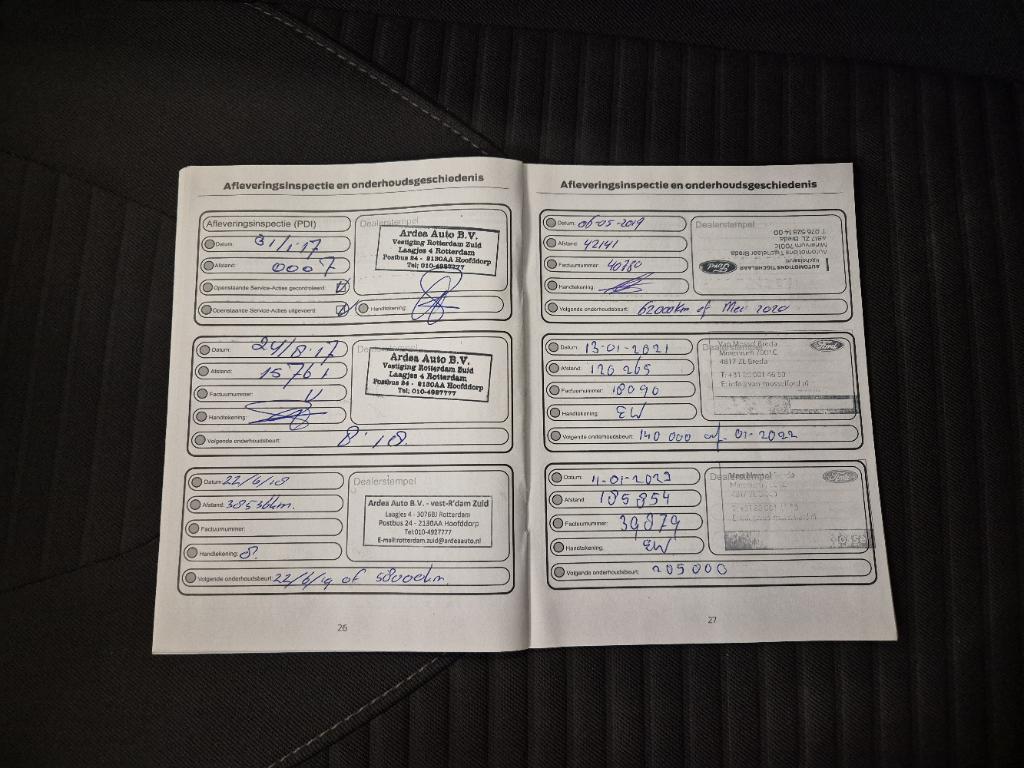 Afleveringsinspectie en onderhoudsgeschiedenis
Afleveringsinspectie (PDI)
Datum: 31/1/17
Afstand: 0007
Openstaande Service-Acties gecontroleerd:
Openstaande Service-Acties uitgevoerd:
Dealerstempel
Ardea Auto B.V.
Vestiging Rotterdam Zuid
Laagjes 4 Rotterdam
Postbus 24 - 2130AA Hoofddorp
Tel; 010-4927777
Handtekening:
Datum: 24/8.17
Afstand: 15761
Factuurnummer:
Handtekening:
Ardea Auto B.V.
Vestiging Rotterdam Zuid
Laagjes 4 Rotterdam
Postbus 24 - 2130AA Hoofddorp
Tel; 010-4927777
Volgende onderhoudsbeurt: 8.18.
Datum: 22/6/18
Afstand: 38530km.
Factuurnummer:
Handtekening:
Dealerstempel
Ardea Auto B.V. - vest-R'dam Zuid
Laagjes 4 - 3076BJ Rotterdam
Postbus 24 - 2130AA Hoofddorp
Tel:010-4927777
E-mail:rotterdam.zuid@ardeaauto.nl
Volgende onderhoudsbeurt: 22/6/19 of 58000km.
26
Afleveringsinspectie en onderhoudsgeschiedenis
Datum: 06-05-2019
Afstand: 42141
Factuurnummer: 40780
Handtekening:
Dealerstempel
Ford
Minervum 7001c
4817 ZL Breda
Volgende onderhoudsbeurt: 62000km of Mei 2020
Datum: 13-01-2021
Afstand: 120265
Factuurnummer: 18090
Handtekening: EW
Van Mossel Breda
Minervum 7001C
4817 ZL Breda
Ford
Volgende onderhoudsbeurt: 140 000 of 01-2022
Datum: 11-01-2023
Afstand: 185854
Factuurnummer: 39879
Handtekening: EW
Dealerstempel
Ford
Volgende onderhoudsbeurt: 205000
27